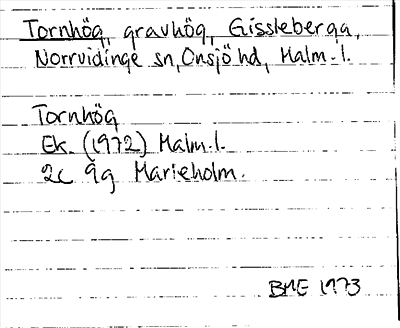 Tornhög, gravhög, Gissleberga,
Norrvidinge sn, Onsjö hd, Malm. l.
Tornhög
Ek. (1972) Malm. l.
2C 9g Marieholm.
BME 1973